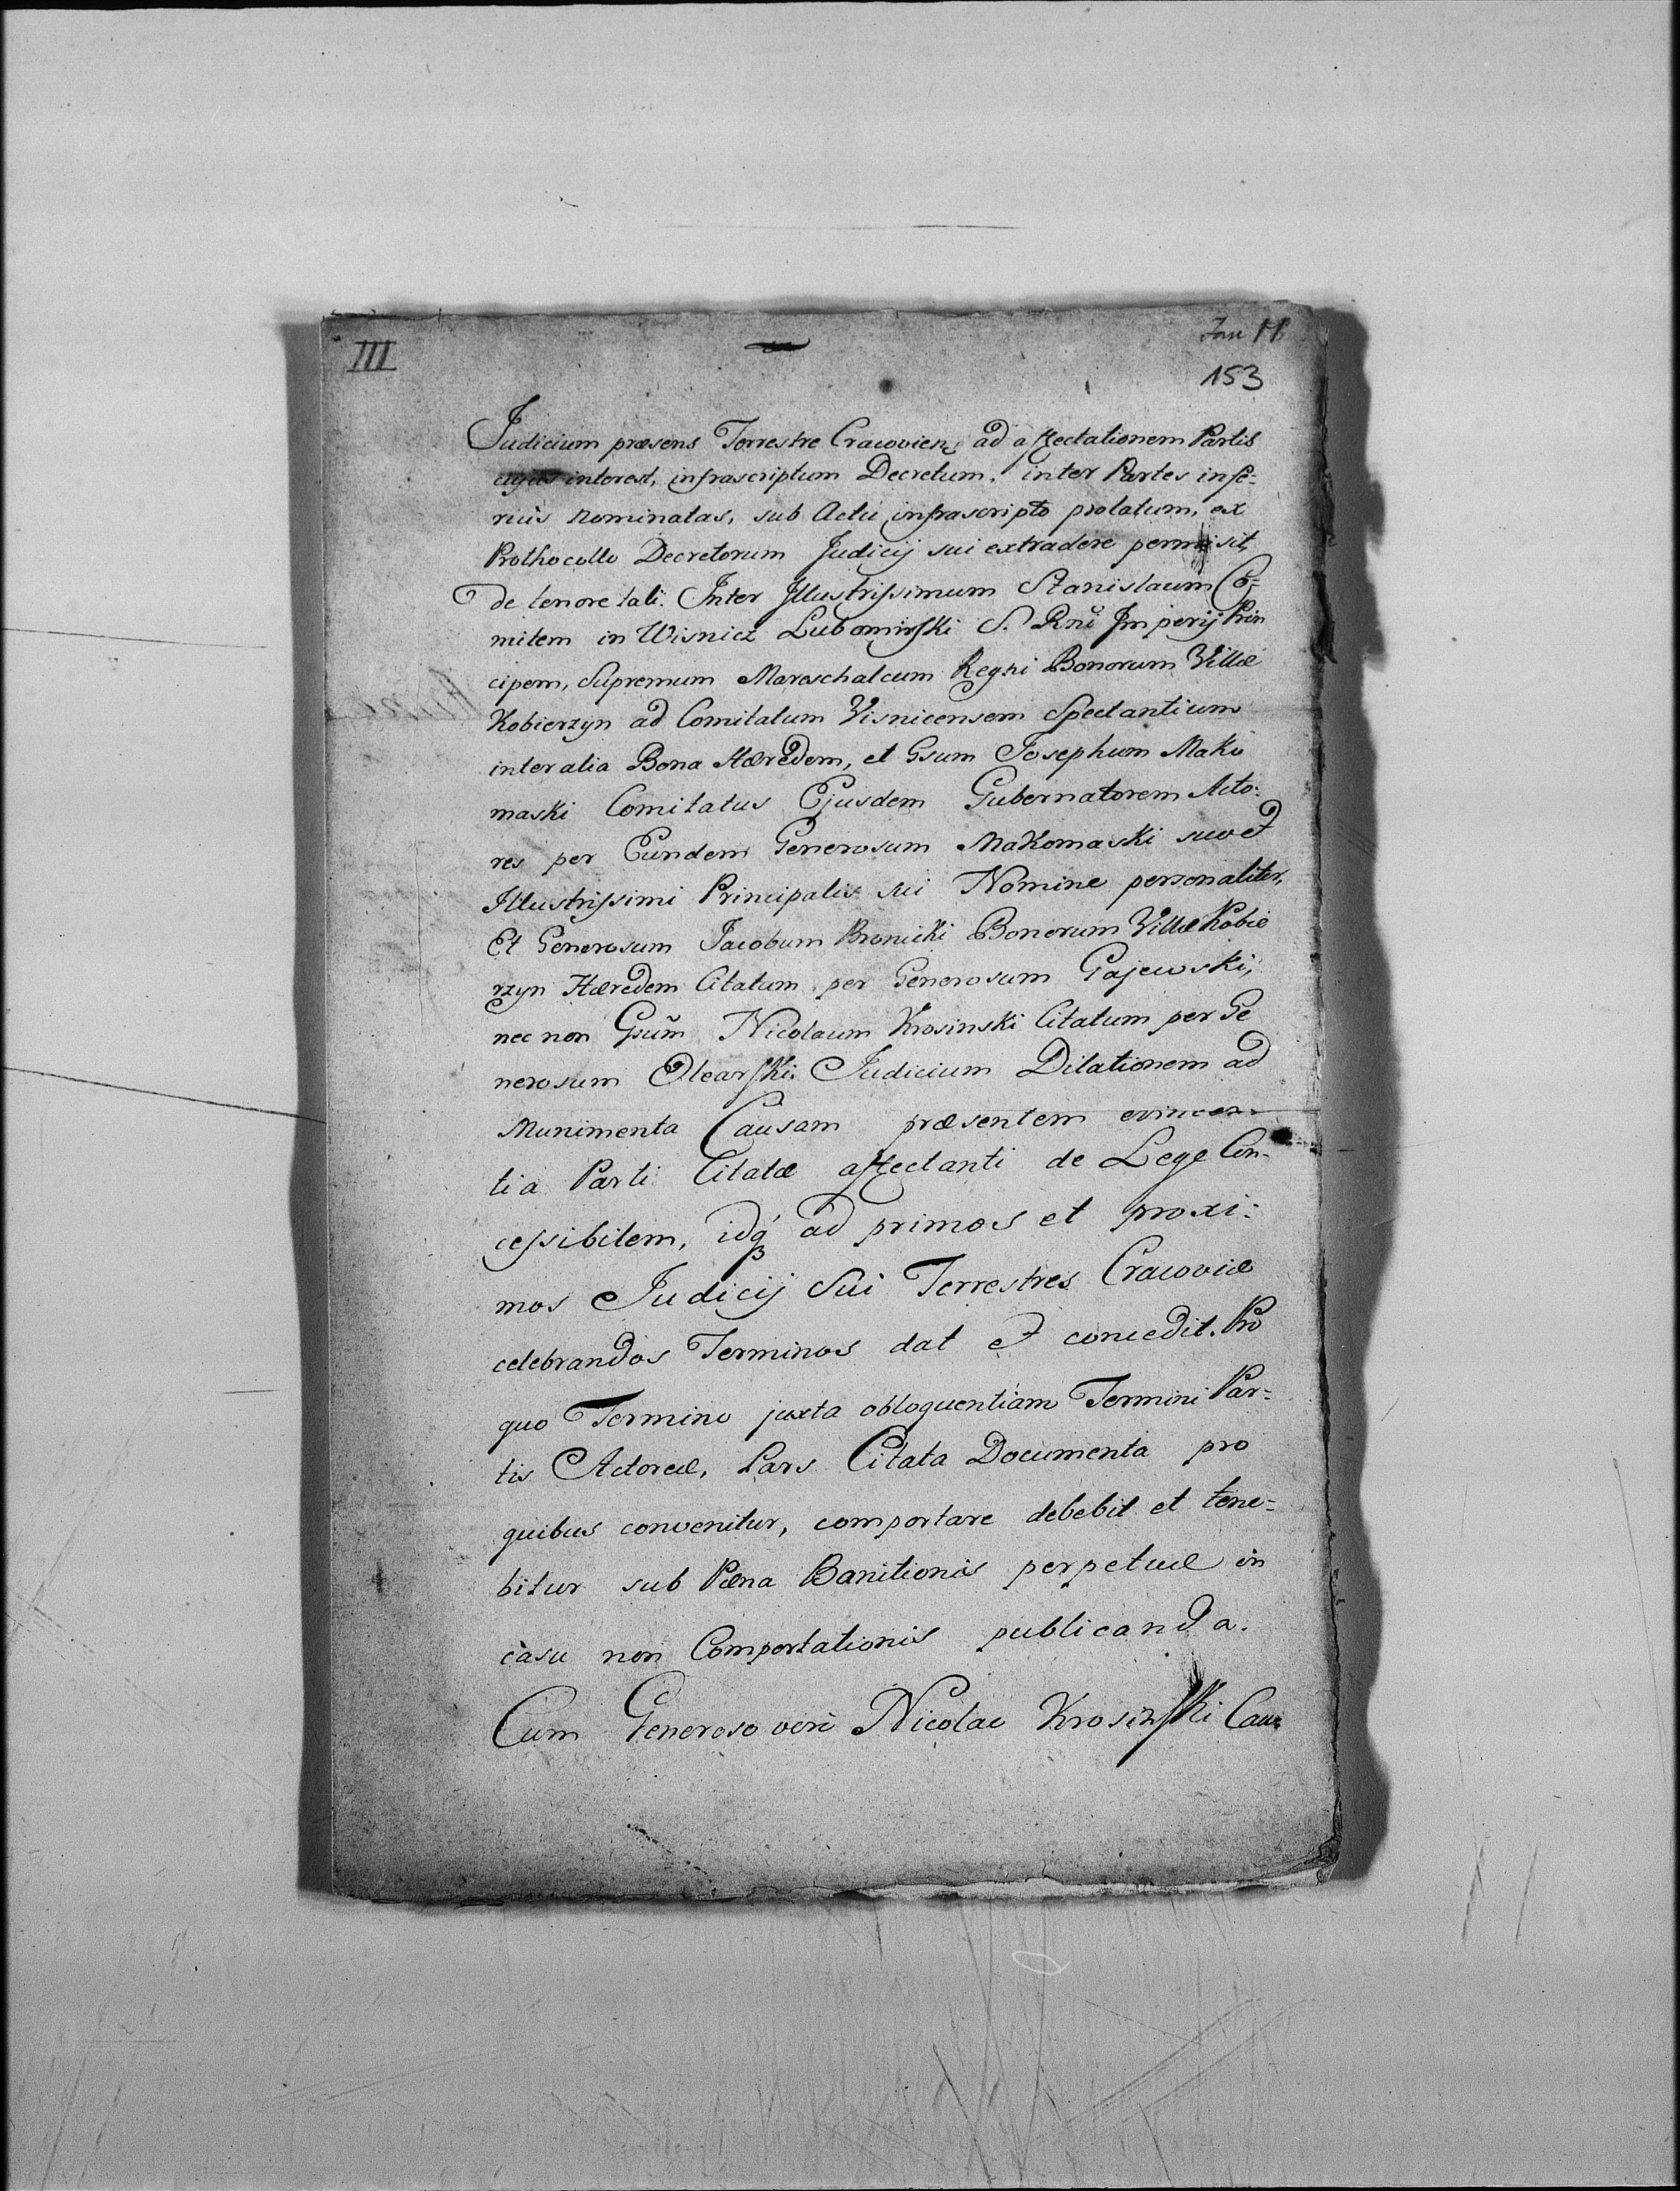 III
153
Judicium præsens Terrestre Cracovien, ad affectationem Partis
cujus interest, infrascriptum Decretum, inter Partes infe-
riùs nominatas, sub Actu infrascripto prolatum, ex
Prothocollo Decretorum Judicij sui extradere permisit,
de tenore tali. Inter Illustrissimum Stanislaum Co-
mitem in Wisnicz Lubomirski S. Rni Imperij Prin
cipem, Supremum Mareschalcum Regni Bonorum Villæ
Kobierzyn ad Comitatum Visnicensem Spectantium
inter alia Bona Hæredem, et Gsum Josephum Mako
maski Comitatus Ejusdem Gubernatorem Acto:
res per Eundem Generosum Makomaski suo et
Illustrissimi Principalis sui Nomine personaliter,
Et Generosum Jacobum Bronicki Bonorum Villæ Kobie
rzyn Hæredem Citatum per Generosum Gajewski,
nec non Gsum Nicolaum Krosinski Citatum per Ge
nerosum Olearski. Judicium Dilationem ad
Munimenta Causam præsentem evincen-
tia Parti Citatæ affectanti de Lege Con-
cessibilem, idq ad primos et proxi:
mos Judicij Sui Terrestres Cracoviæ
celebrandos Terminos dat et concedit. Pro
quo Termino juxta obloquentiam Termini Par=
tis Actoreæ, Pars Citata Documenta pro
quibus convenitur, comportare debebit et tene=
bitur sub Pæna Banitionis perpetuæ in
càsu non Comportationis publicanda.
Cum Generoso verò Nicolao Krosinski Cau